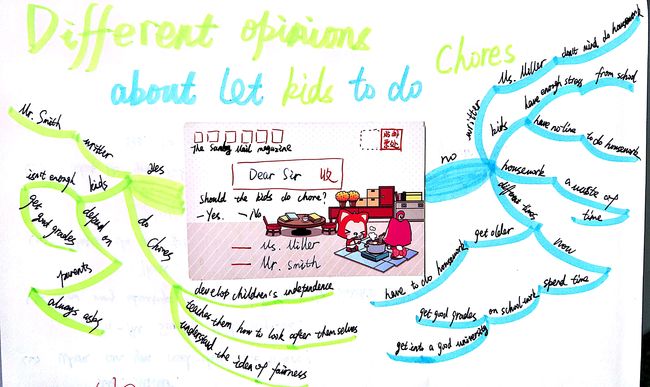 Different opinions
about let kids to do
Chores
The Sunday Mail magazine
Dear Sir 收
Should the kids do chore?
- Yes. - No
— Ms. Miller
— Mr. Smith
Mr. Smith
writer
yes
isn't enough
kids
get
good grades
depend on
parents
always asks
do
Chores
develop children's independence
teaches them how to look after themselves
understand the idea of fairness
no
writter
Ms. Miller
don't mind do housework
kids
have enough stress
from school
have no time
to do housework
housework
a waste of
time
different times
get older
have to do housework
now
spend time
on school work
get good grades
get into a good university